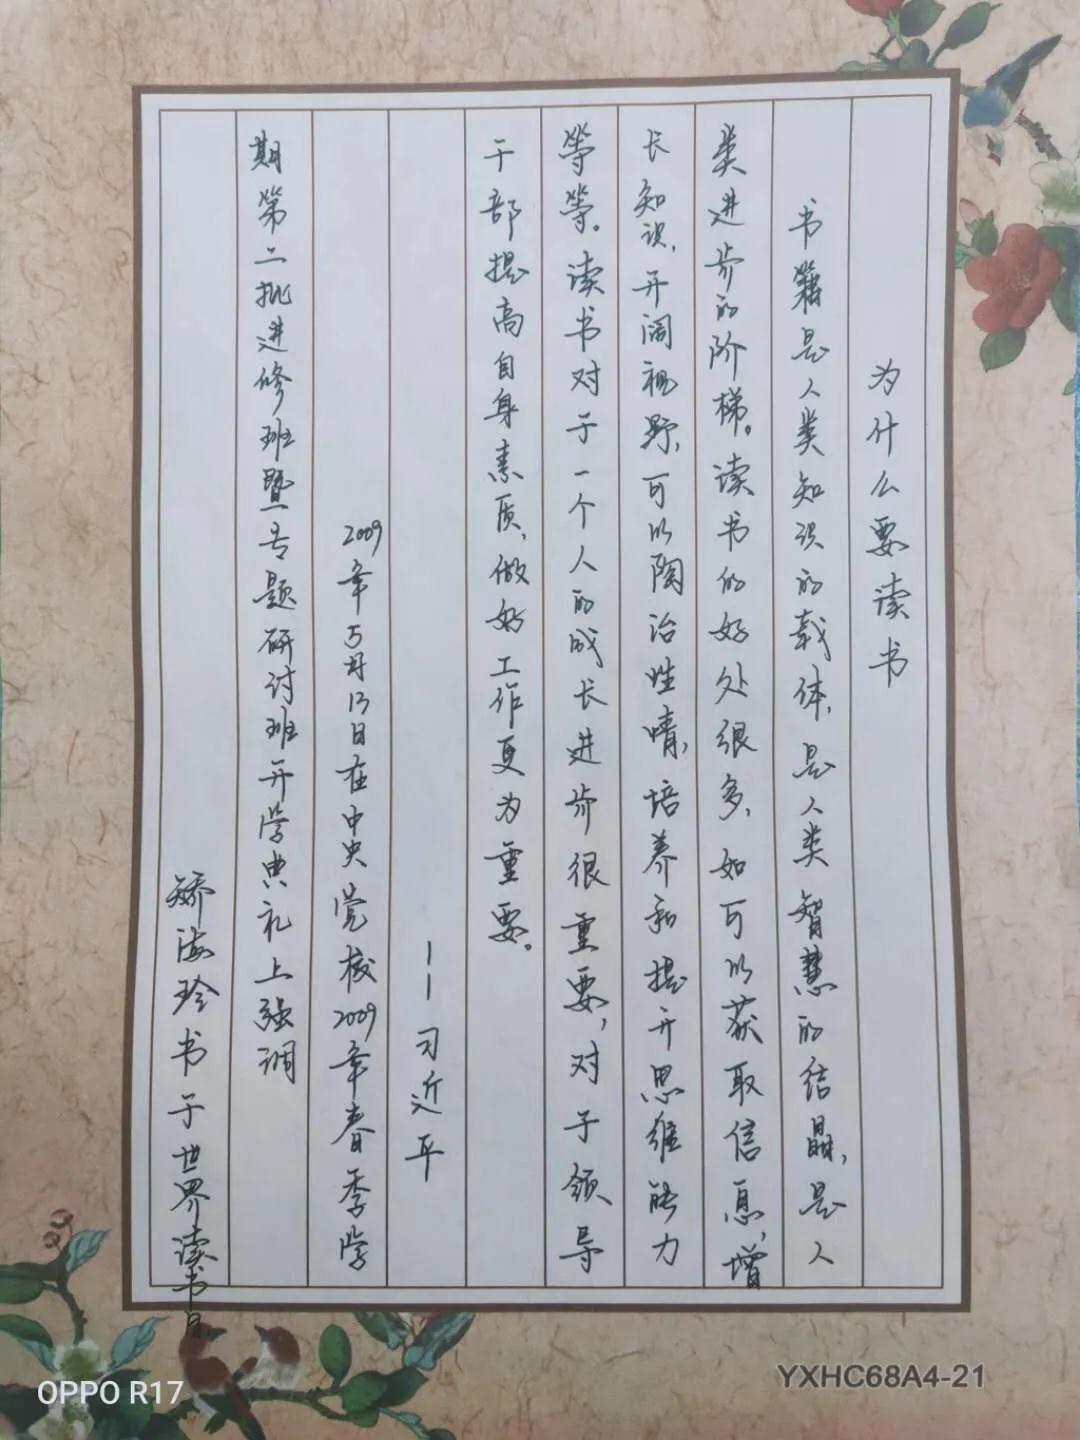 为什么要读书
书籍是人类知识的载体，是人类智慧的结晶，是人
类进步的阶梯。读书的好处很多，如可以获取信息，增
长知识，开阔视野，可以陶冶性情，培养和提升思维能力
等等。读书对于一个人的成长进步很重要，对于领导
干部提高自身素质，做好工作更为重要。
——习近平
2009年5月13日在中央党校2009年春季学
期第二批进修班暨专题研讨班开学典礼上强调
矫海玲书于世界读书日
YXHC68A4-21
OPPO R17